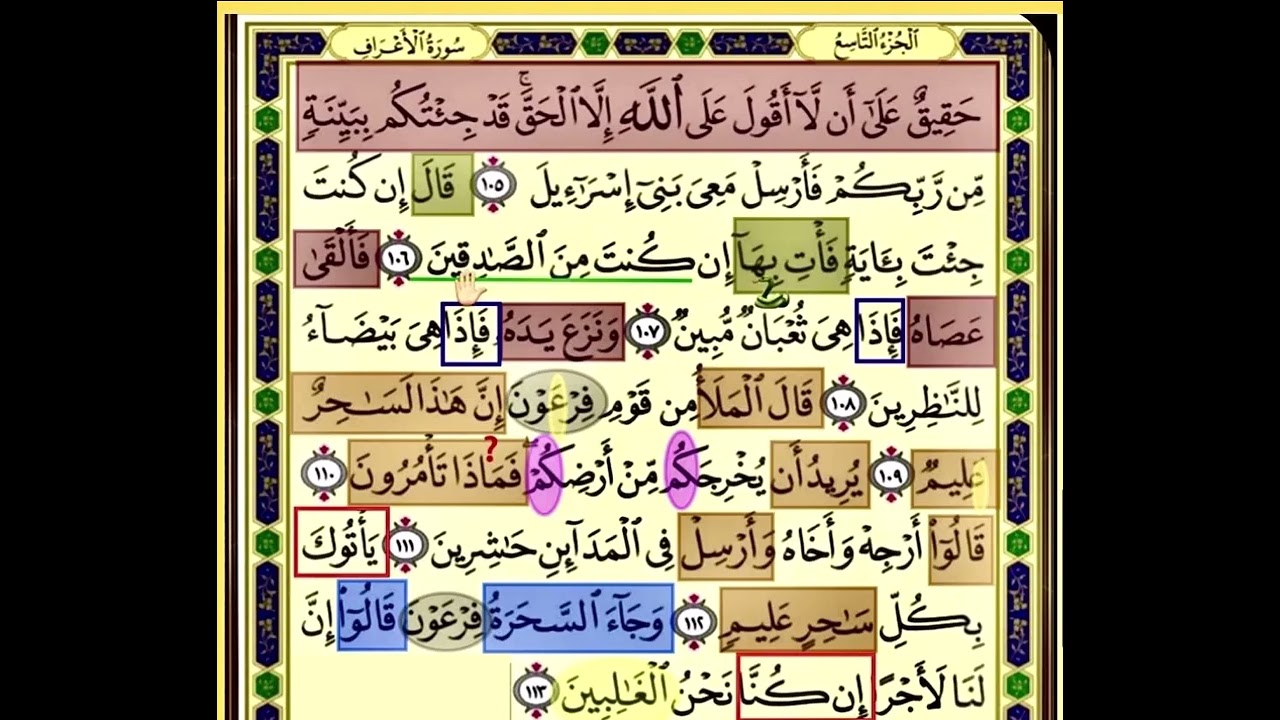 الْجُزْءُ التَّاسِعُ
سُورَةُ الْأَعْرَافِ
حَقِيقٌ عَلَىٰٓ أَن لَّآ أَقُولَ عَلَى ٱللَّهِ إِلَّا ٱلْحَقَّۚ قَدْ جِئْتُكُم بِبَيِّنَةٍ
مِّن رَّبِّكُمْ فَأَرْسِلْ مَعِىَ بَنِىٓ إِسْرَٰٓءِيلَ ١٠٥ قَالَ إِن كُنتَ
جِئْتَ بِـَٔايَةٍ فَأْتِ بِهَآ إِن كُنتَ مِنَ ٱلصَّٰدِقِينَ ١٠٦ فَأَلْقَىٰ
عَصَاهُ فَإِذَا هِىَ ثُعْبَانٌ مُّبِينٌ ١٠٧ وَنَزَعَ يَدَهُۥ فَإِذَا هِىَ بَيْضَآءُ
لِلنَّٰظِرِينَ ١٠٨ قَالَ ٱلْمَلَأُ مِن قَوْمِ فِرْعَوْنَ إِنَّ هَٰذَا لَسَٰحِرٌ
عَلِيمٌ ١٠٩ يُرِيدُ أَن يُخْرِجَكُم مِّنْ أَرْضِكُمْۖ فَمَاذَا تَأْمُرُونَ ؟ ١١٠
قَالُوٓا۟ أَرْجِهْ وَأَخَاهُ وَأَرْسِلْ فِى ٱلْمَدَآئِنِ حَٰشِرِينَ ١١١ يَأْتُوكَ
بِكُلِّ سَٰحِرٍ عَلِيمٍ ١١٢ وَجَآءَ ٱلسَّحَرَةُ فِرْعَوْنَ قَالُوٓا۟ إِنَّ
لَنَا لَأَجْرًا إِن كُنَّا نَحْنُ ٱلْغَٰلِبِينَ ١١٣